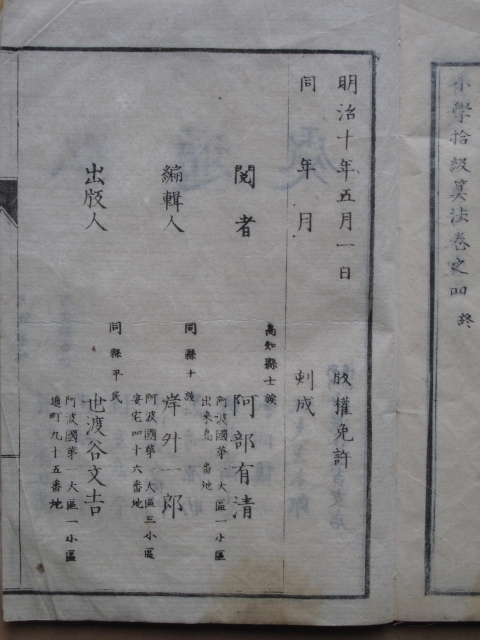 小學拾級筭法卷之四 終
明治十年五月一日 版權免許
同年月 刻成
高知縣士族
閲者 阿部有清
阿波國第一大區一小區
出来島 番地
同縣士族
編輯人 岸外一郎
阿波國第一大區三小區
安宅四十六番地
同縣平民
出版人 世渡谷文吉
阿波國第一大區一小區
通町九十五番地